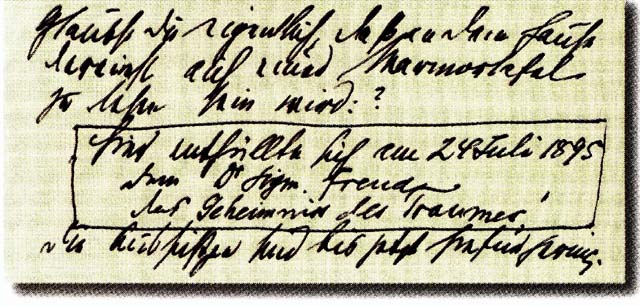 Glaubst Du eigentlich, daß an dem Hause
dereinst auf einer Marmortafel
zu lesen sein wird: ?
Hier enthüllte sich am 24 Juli 1895
dem Dr Sigm. Freud
das Geheimnis des Traumes!
Die Aussichten sind bis jetzt hiefür gering.